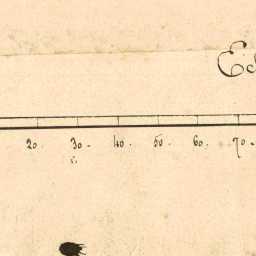 20. 30. 40. 50. 60. 70.